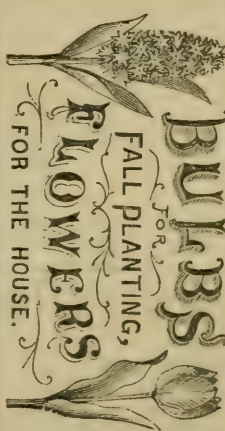 BULBS
FOR
FALL PLANTING,
FLOWERS
FOR THE HOUSE.